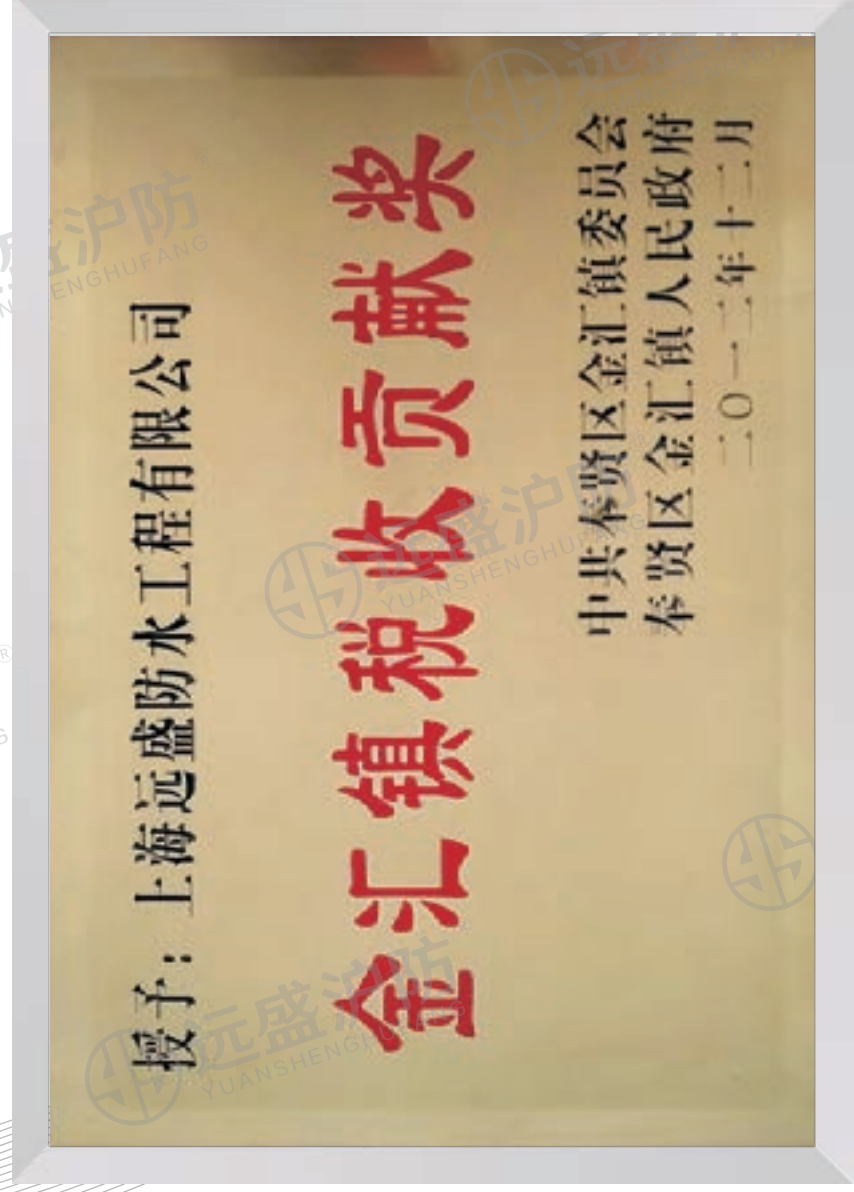 授予：上海远盛防水工程有限公司
金汇镇税收贡献奖
中共奉贤区金汇镇委员会
奉贤区金汇镇人民政府
二〇一二年十二月
远盛沪防
YUANSHENGHUFANG